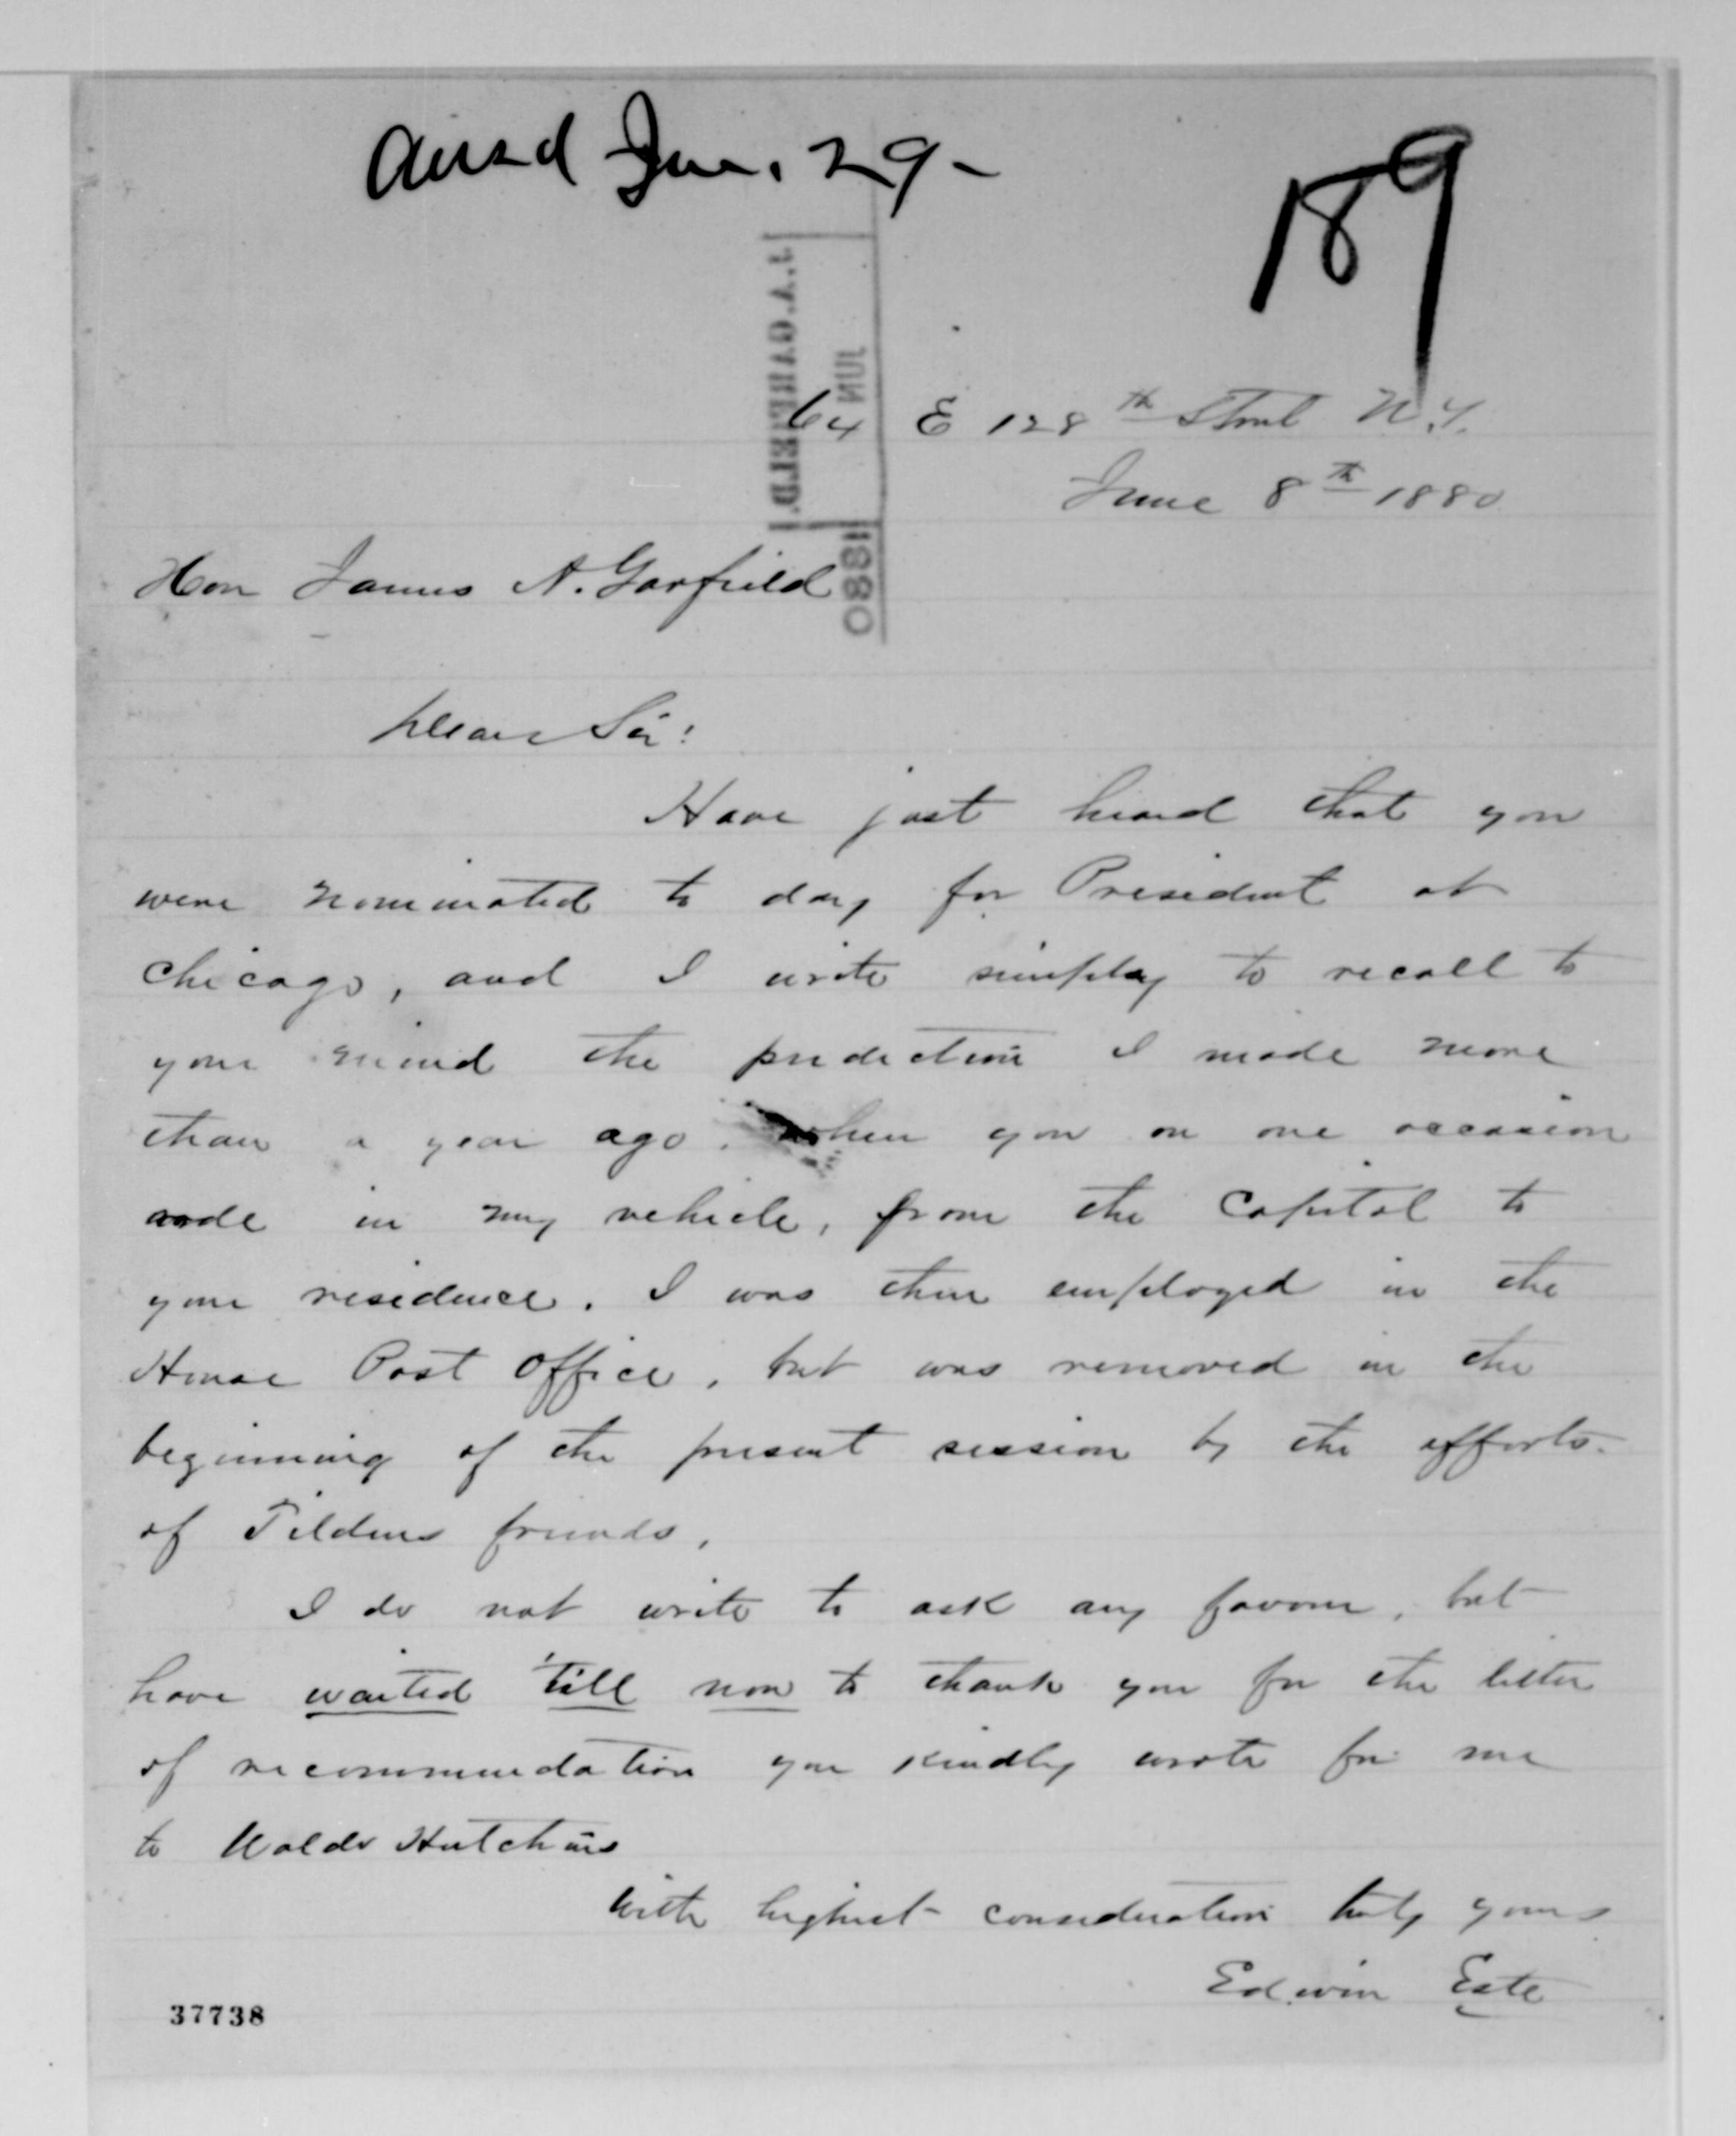 Ansd Jun. 29-
189
J. A. GARFIELD.
JUN
1880
64 E 128th Street N.Y.
June 8th 1880
Hon James A. Garfield
Dear Sir:
Have just heard that you
were nominated to day for President at
Chicago, and I write simply to recall to
your mind the prediction I made more
than a year ago. when you on one occasion
rode in my vehicle, from the Capitol to
your residence. I was then employed in the
House Post Office, but was removed in the
beginning of the present session by the efforts
of Tildens friends.
I do not write to ask any favour, but
have waited 'till now to thank you for the letter
of recommendation you kindly wrote for me
to Waldo Hutchins
With highest consideration truly yours
Edwin Este
37738